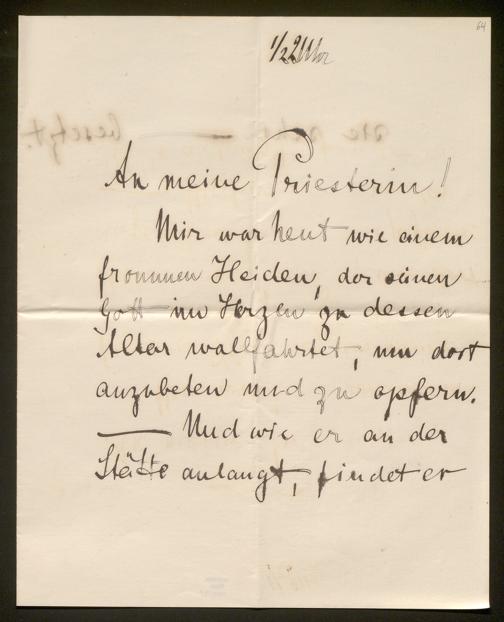 64
1/2 2 Uhr
An meine Priesterin!
Mir war heut wie einem
frommen Heiden, der seinen
Gott im Herzen zu dessen
Altar wallfahrtet, um dort
anzubeten und zu opfern.
— Und wie er an der
Stätte anlangt, findet er